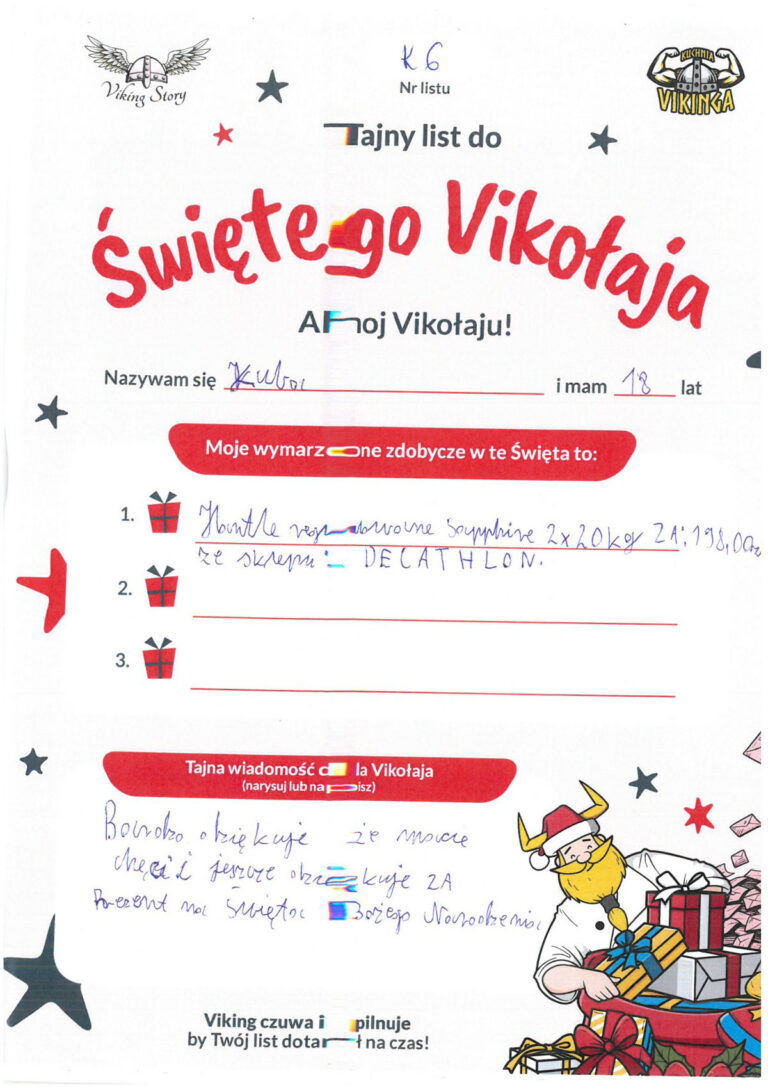 Viking Story
K 6
Nr listu
KUCHNIA
VIKINGA
Tajny list do
Świętego Vikołaja
Ahoj Vikołaju!
Nazywam się Kuba i mam 18 lat
Moje wymarzone zdobycze w te Święta to:
1. Hantle Sapphire 2x20kg ZA: 198,00zł
ze sklepu: DECATHLON.
2.
3.
Tajna wiadomość dla Vikołaja
(narysuj lub napisz)
Bardzo dziękuje że macie
chęci i jeszcze dziękuje ZA
Prezent na Święta Bożego Narodzenia
Viking czuwa i pilnuje
by Twój list dotarł na czas!